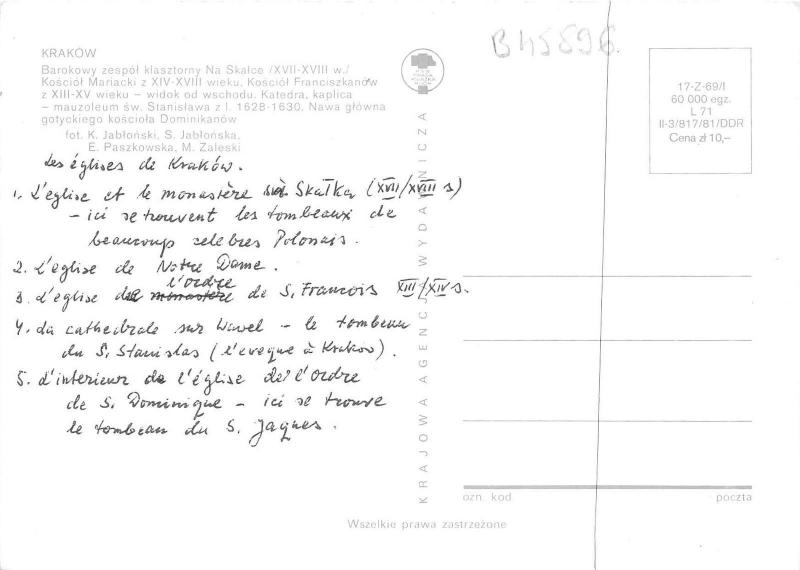 KRAKÓW
Barokowy zespół klasztorny Na Skałce /XVII-XVIII w./
Kościół Mariacki z XIV-XVIII wieku, Kościół Franciszkanów
z XIII-XV wieku – widok od wschodu. Katedra, kaplica
– mauzoleum św. Stanisława z l. 1628-1630. Nawa główna
gotyckiego kościoła Dominikanów
fot. K. Jabłoński, S. Jabłońska,
E. Paszkowska, M. Zaleski
Les églises de Kraków.
1. L'eglise et le monastère Skałka (XVII/XVIII s)
– ici se trouvent les tombeaux de
beaucoup celebres Polonais.
2. L'eglise de Notre Dame.
3. L'eglise de l'ordre de S. Francois XIII/XIV s.
4. La cathedrale sur Wawel – le tombeau
du S. Stanislas (l'eveque à Krakow).
5. L'interieur de l'église de l'Ordre
de S. Dominique – ici se trouve
le tombeau du S. Jaques.
KRAJOWA AGENCJA WYDAWNICZA
B45596
17-Z-69/I
60 000 egz.
L 71
II-3/817/81/DDR
Cena zł 10,–
ozn. kod.
poczta
Wszelkie prawa zastrzeżone